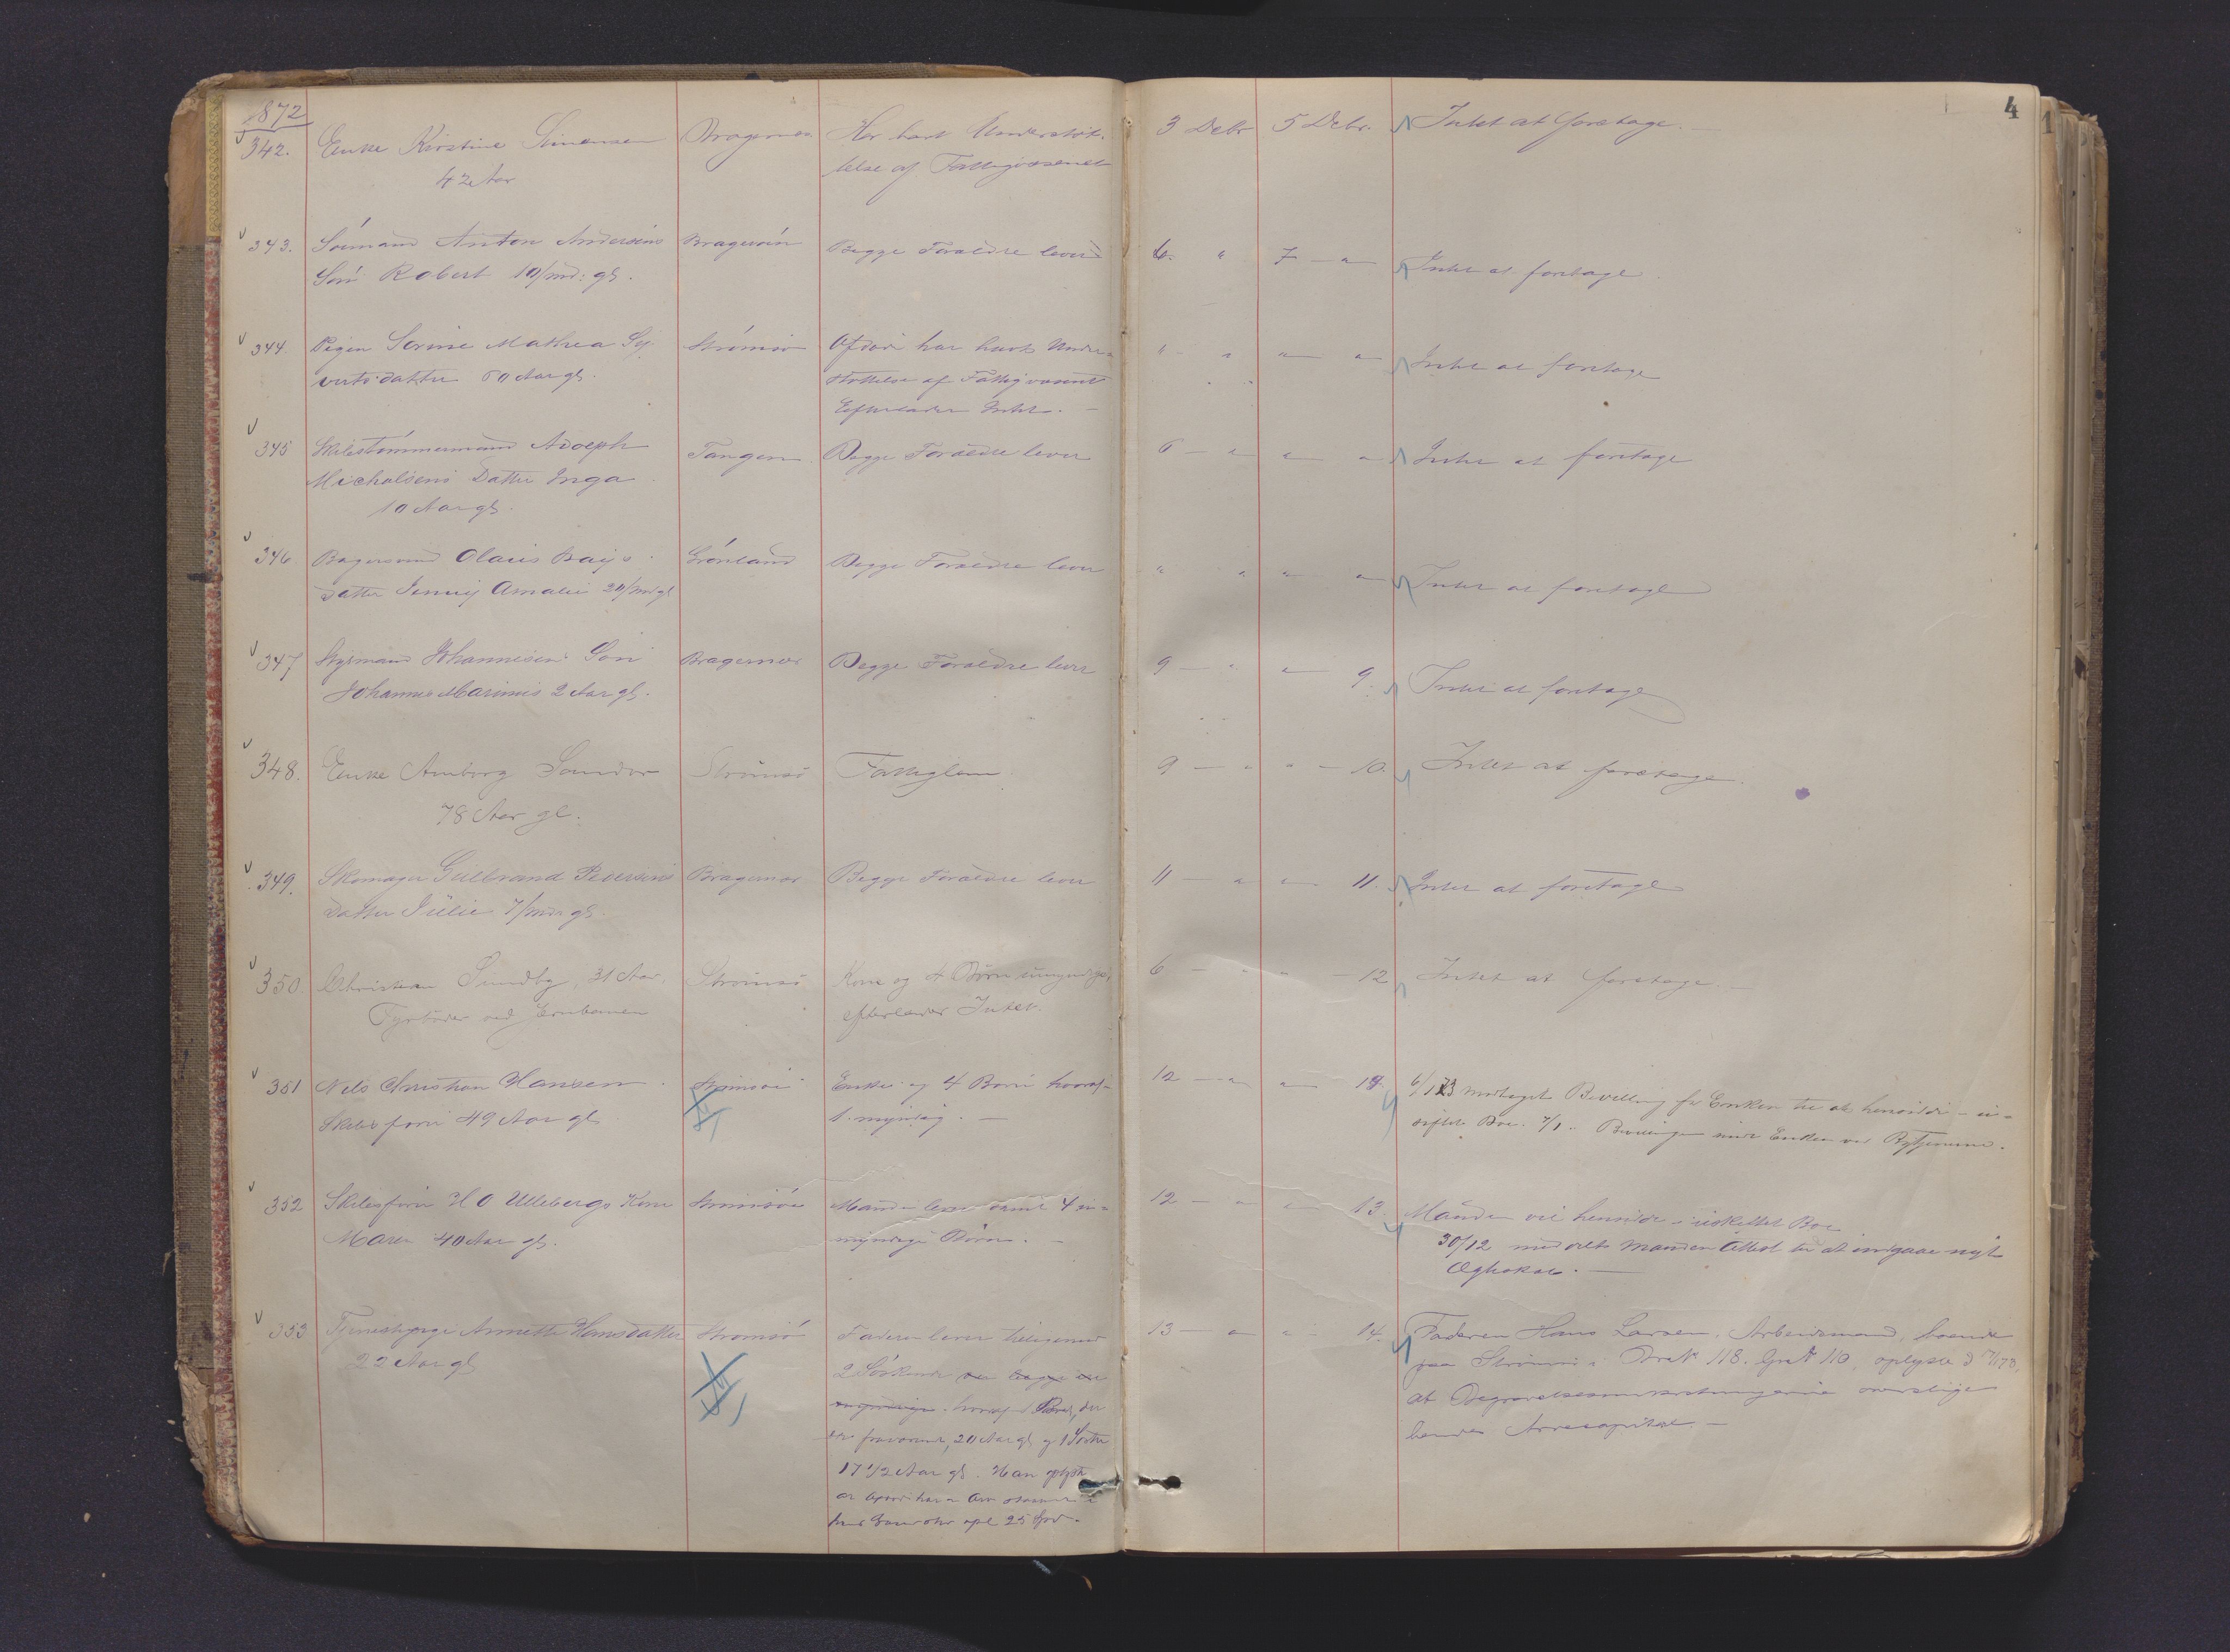 4
1872
342. Enke Kirstine Simensen Bragernæs Har havt Understøt- 3 Decbr 5 Decbr. Intet at foretage.
42 Aar telse af Fattigvæsenet
343. Sömand Anton Andersens Bragernæs Begge Forældre lever 6. " 7 — " Intet at foretage.
Sön Robert 10/md: gl.
344. Pigen Sorine Mathea Sy- Strömsö Afdøde har havt Under- " " " " Intet at foretage
vertsdatter 60 Aar gl. støttelse af Fattigvæsenet
Efterlader Intet. —
345 Skibstömmermand Adolph Tangen Begge Forældre lever 6 — " " " Intet at foretage
Michalsens Datter Inga
10 Aar gl.
346 Bagersvend Olaus Grönland Begge Forældre lever " " " " Intet at foretage
Datter Jenny Amalie 20/md gl
347 Styrmand Johannesens Sön Bragernæs Begge Forældre lever 9 — " " — 9. Intet at foretage
Johannes Marinus 2 Aar gl.
348. Enke Amborg Sander Strömsö Fattiglem 9 — " " — 10. Intet at foretage.
78 Aar gl.
349. Skomager Gulbrand Pedersens Bragernæs Begge Forældre lever 11 — " " — 11. Intet at foretage
Datter Julie 7/mdr gl.
350 Christian Sundby, 31 Aar, Strömsö Kone og 4 Børn umyndige, 6 — " " — 12 Intet at foretage. —
Fyrbøder ved Jernbanen efterlader Intet.
351 Nils Christian Hansen Strömsöe Enke og 4 Børn hvoraf 12 — " " 19. 6/1 73 modtaget Bevilling for Enken til at hensidde i u-
Skibsfører 49 Aar gl 1 myndig. — skiftet Boe. 7/1.. Bevillingen Enken ved
352 Skibsfører H O Ullebergs Kone Strömsöe Manden lever samt 4 u- 12 — " " 13. Manden vil hensidde i uskiftet Boe
Maren 40 Aar gl. myndige Börn. — 30/12 meddelt Manden Attest til at indgaae nyt
Ægteskab. —
353 Tjenestepige Annette Hansdatter Strömsö Faderen lever tilligemed 13 — " " 14. Faderen Hans Larsen, Arbeidsmand, boende
22 Aar gl 2 Söskende paa Strömsö i No 118. No 110, oplyste d
hvoraf 1 Broder, der at Begravelsesomkostningerne overstige
er fraværende, 20 Aar gl og 1 Søster hendes Arvecapital —
17 1/2 Aar gl. Han oplyste
at Afdøde har
25 Spd.